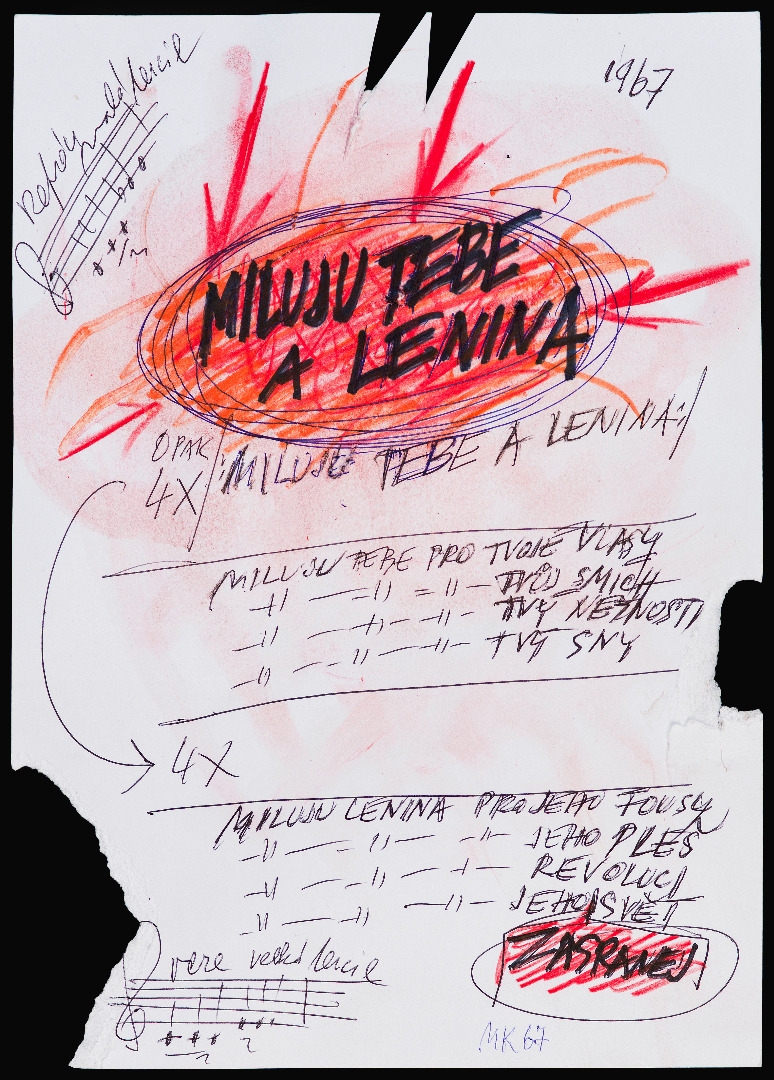 1967
MILUJU TEBE
A LENINA
OPAK
4X /: MILUJU TEBE A LENINA :/
MILUJU TEBE PRO TVOJE VLASY
-||- -||- =||- TVŮJ SMÍCH
-||- -||- -||- TVÝ NĚŽNOSTI
-||- -||- -||- TVÝ SNY
4X
MILUJU LENINA PRO JEHO FOUSY
-||- -||- -||- JEHO PLEŠ
-||- -||- -||- REVOLUCI
-||- -||- -||- JEHO SVĚT
ZASRANEJ
MK 67